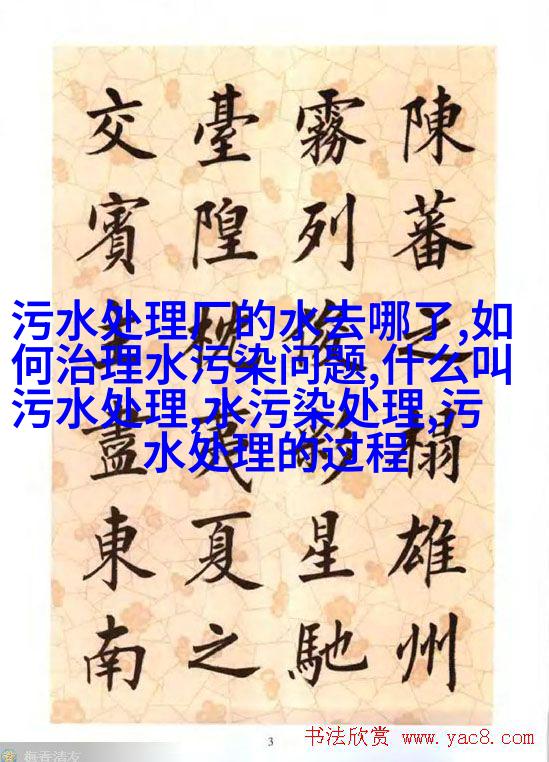 陳蕃之榻雄州
霧列俊彩星馳
臺隍枕夷夏之
交賓主盡東南
污水处理厂的水去哪了,如
何治理水污染问题,什么叫
污水处理,水污染处理,污
水处理的过程
3
书法欣赏 www.yac8.com
梅香清友